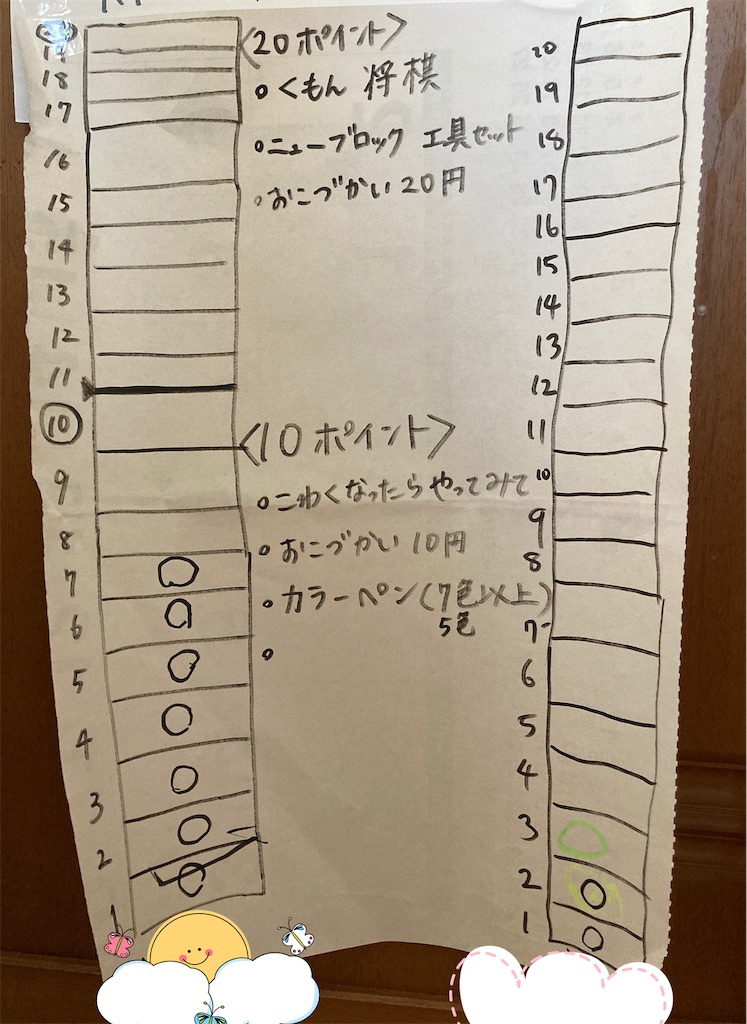 19
18
17
16
15
14
13
12
11
10
9
8
7
6
5
4
3
2
1
<20ポイント>
○くもん 将棋
○ニューブロック 工具セット
○おこづかい20円
<10ポイント>
○こわくなったらやってみて
○おこづかい10円
○カラーペン(7色以上)
5色
○
20
19
18
17
16
15
14
13
12
11
10
9
8
7
6
5
4
3
2
1